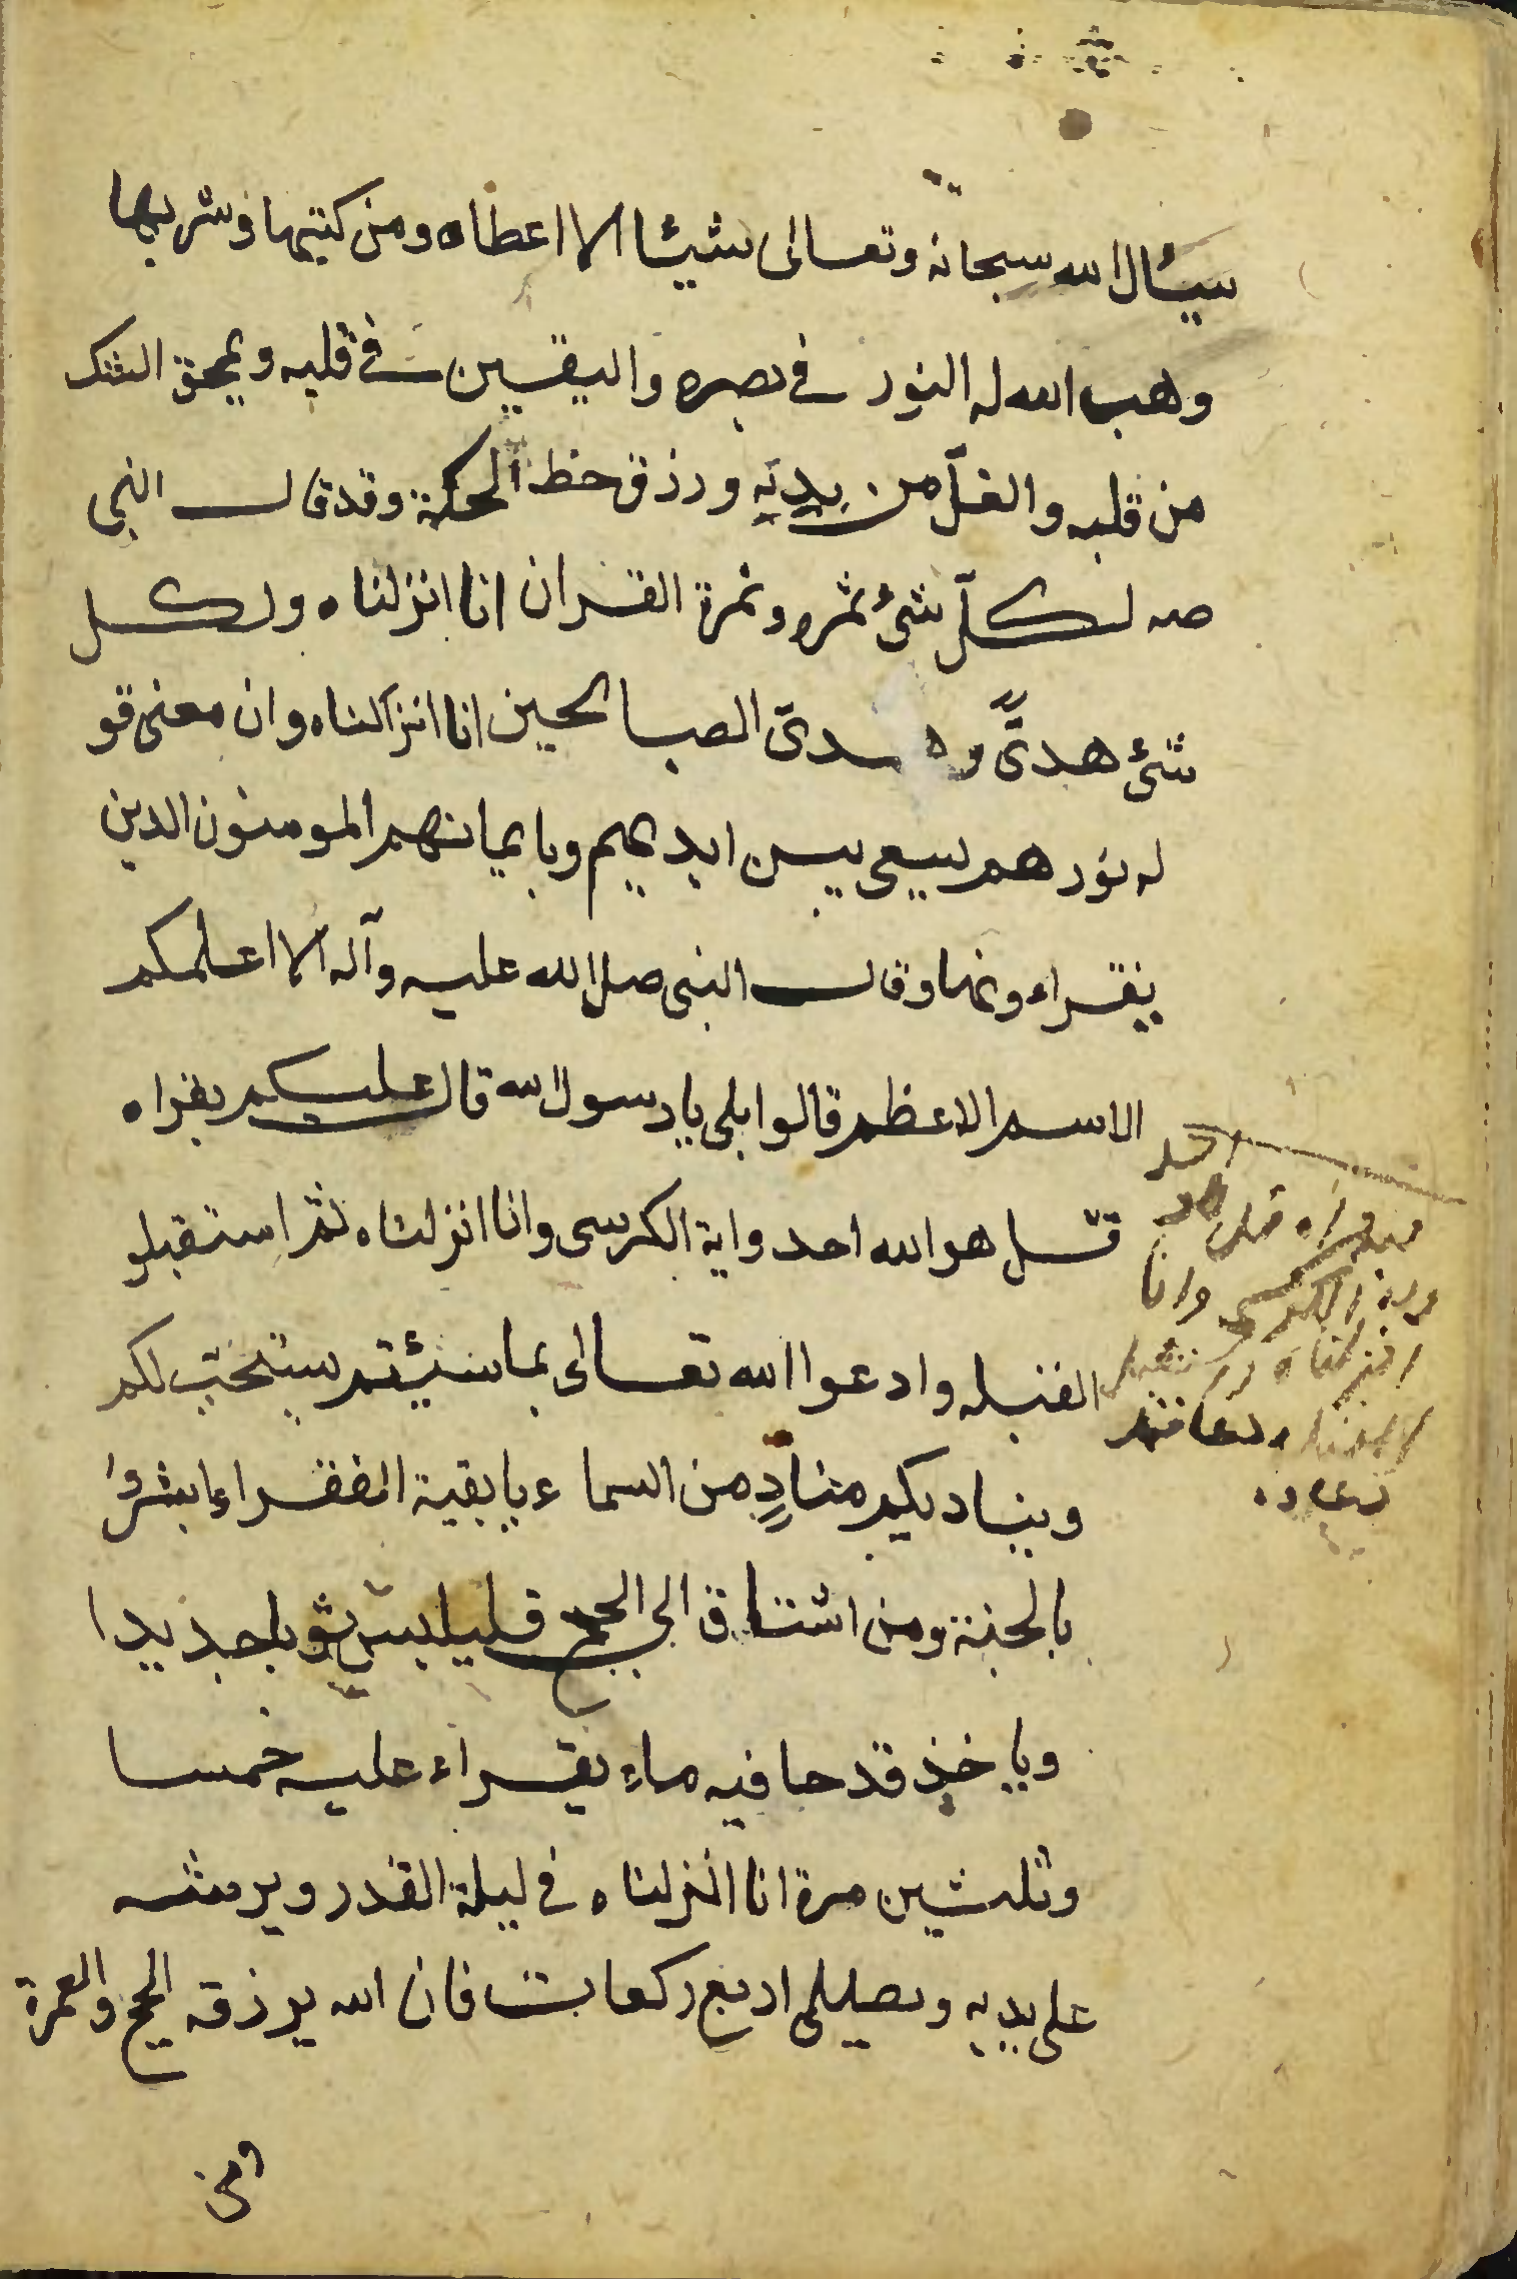 سيئال الله سبحانه وتعالى شيئا الا اعطاه ومن كتبها وشربها
وهب الله له النور في بصره واليقين في قلبه ويمحق الشك
من قلبه والغل من بدنه ورزق حظ الحكمة وقد قال النبي
صه لكل شئ ثمره وثمرة القران انا انزلناه ولكل
شئ هدى وهدى الصالحين انا انزلناه وان معنى قو
له نورهم يسعى بين ايديهم وبايمانهم المومنون الذين
يقراءونها وقال النبي صلى الله عليه وآله الا اعلمكم
الاسم الاعظم قالوا بلى يا رسول الله قال عليكم بقراه
قل هو الله احد واية الكرسى وانا انزلناه ثم استقبلو
القبله وادعوا الله تعالى بما شئتم يستجب لكم
وينا ديكم مناد من السماء يا بقية الفقراء ابشروا
بالجنة ومن اشتاق الى الحج فليلبس ثوبا جديدا
وياخذ قدحا فيه ماء يقراء عليه خمسا
وثلثين مرة انا انزلناه في ليلة القدر ويرشه
على بدنه ويصلى اربع ركعات فان الله يرزقه الحج والعمرة
ومن
الكرسي وانا
انزلناه